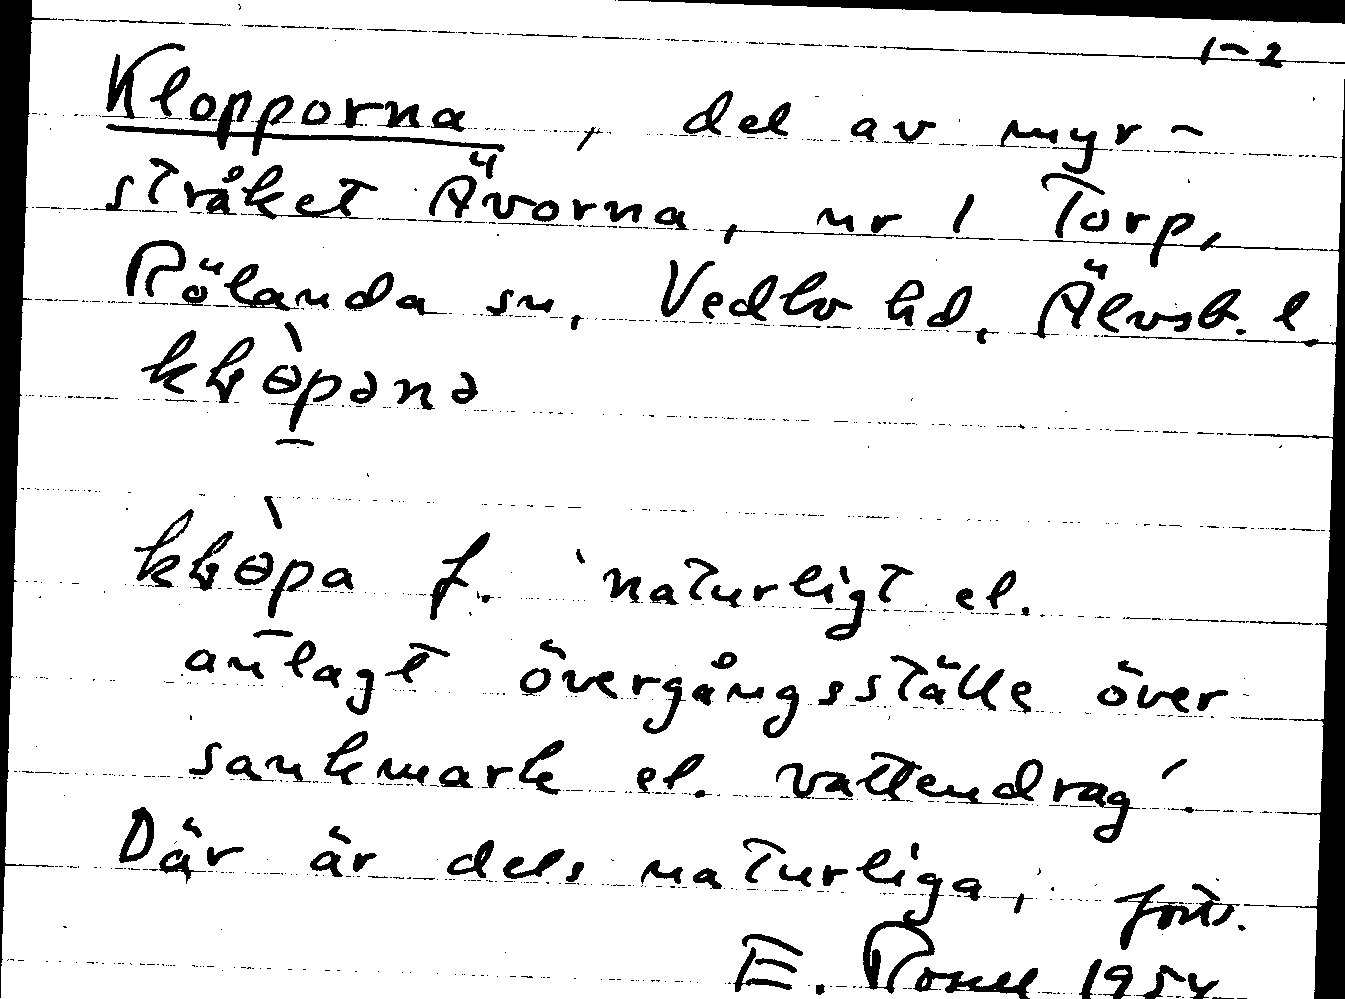 1-2
Klopporna, del av myr-
stråket Ävorna, nr 1 Torp,
Rölanda sn, Vedbo hd, Älvsb. l.
naturligt el.
anlagt övergångsställe över
sankmark el. vattendrag'.
Där är dels naturliga, forts.
E. 1954